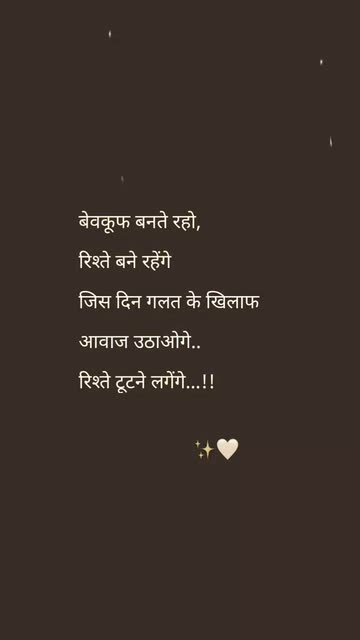 बेवकूफ बनते रहो,
रिश्ते बने रहेंगे
जिस दिन गलत के खिलाफ
आवाज उठाओगे..
रिश्ते टूटने लगेंगे...!!
✨🤍